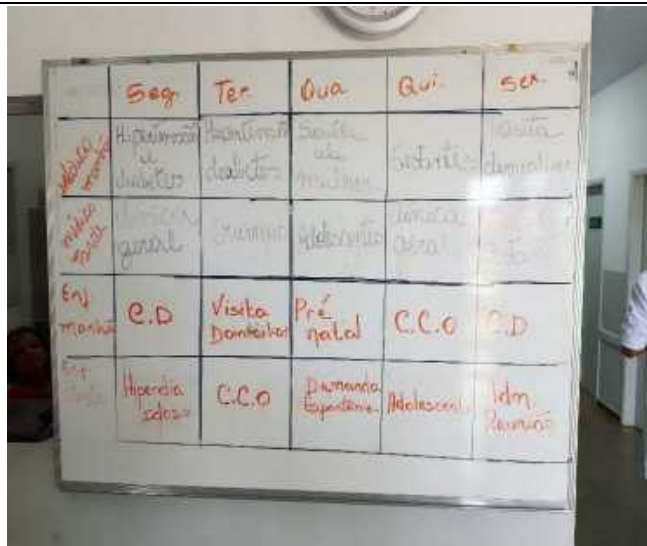 Seg. Ter Qua Qui. Sex.
Médico manhã
Hipertensão e diabetes
Hipertensão diabetes
Saúde da mulher
Gestante
Visita domiciliar
Médico tarde
Clínica geral
Adolescente
Clínica Geral
Enf manhã
C.D
Visita Domiciliar
Pré natal
C.C.O
C.D
Enf tarde
Hiperdia idoso
C.C.O
Demanda Espontânea
Adolescente
Adm. Reunião